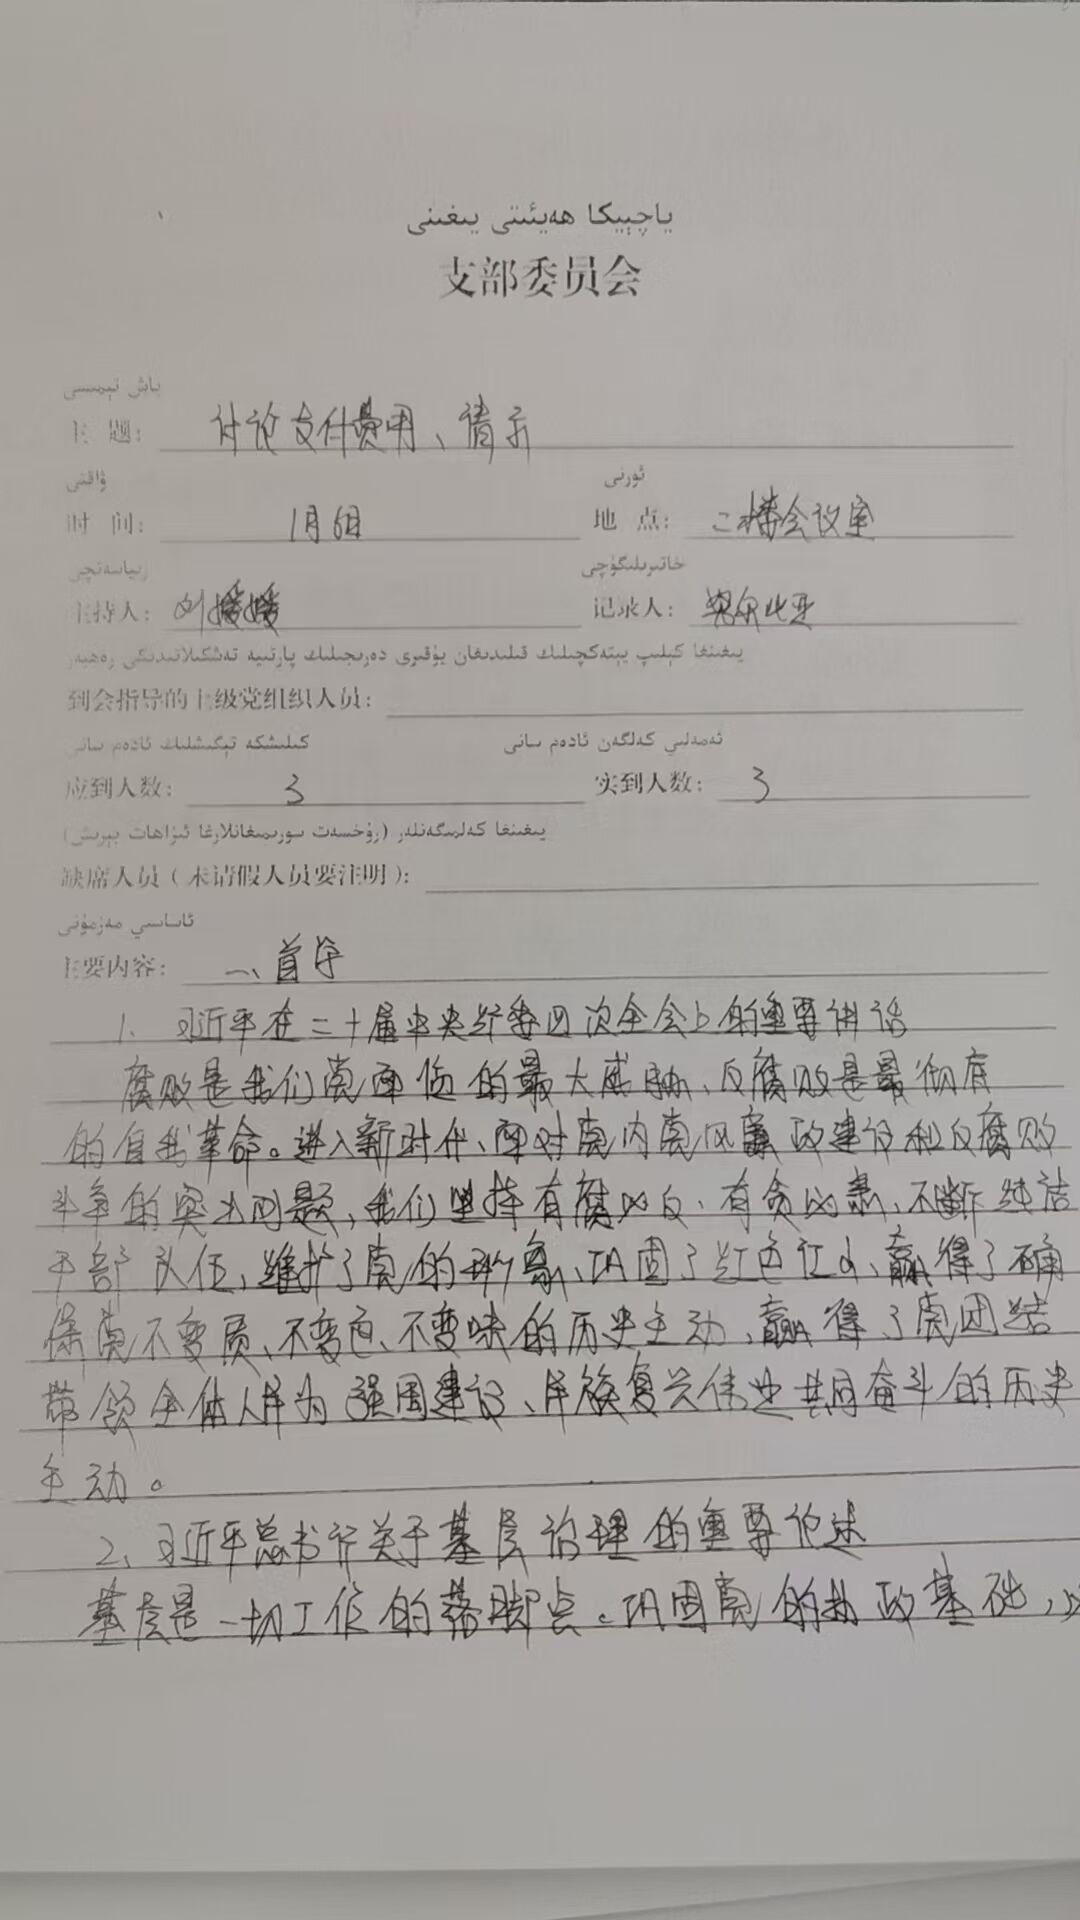 ياچېيكا ھەيئىتى يىغىنى
支部委员会
باش تېمىسى
主题: 讨论支付费用、请示
ۋاقتى ئورنى
时间: 1月6日 地点: 二楼会议室
رىياسەتچى خاتىرىلىگۈچى
主持人: 刘媛媛 记录人: 努尔比亚
يىغىنغا كېلىپ يېتەكچىلىك قىلىدىغان يۇقىرى دەرىجىلىك پارتىيە تەشكىلاتىدىكى رەھبەر
到会指导的上级党组织人员:
كېلىشكە تېگىشلىك ئادەم سانى ئەمەلىي كەلگەن ئادەم سانى
应到人数: 3 实到人数: 3
يىغىنغا كەلمىگەنلەر (رۇخسەت سورىمىغانلارغا ئىزاھات بېرىش)
缺席人员(未请假人员要注明):
ئاساسىي مەزمۇنى
主要内容: 一、首学
1. 习近平在二十届中央纪委四次全会上的重要讲话
腐败是我们党面临的最大威胁、反腐败是最彻底
的自我革命。进入新时代、面对党内党风廉政建设和反腐败
斗争的突出问题,我们坚持有腐必反、有贪必肃、不断纯洁
干部队伍,维护了党的形象、巩固了红色江山、赢得了确
保党不变质、不变色、不变味的历史主动、赢得了党团结
带领全体人民为强国建设、民族复兴伟业共同奋斗的历史
主动。
2、习近平总书记关于基层治理的重要论述
基层是一切工作的落脚点。巩固党的执政基础,